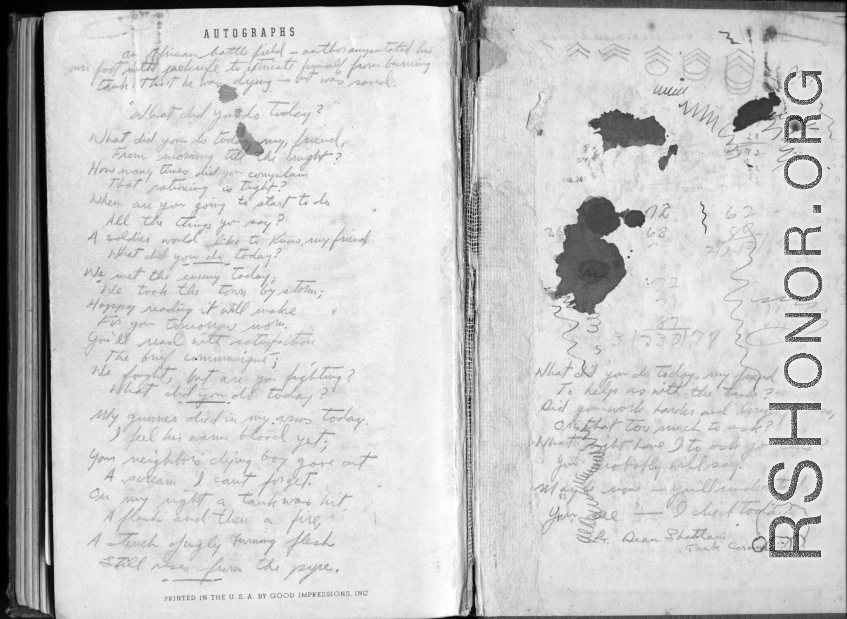 AUTOGRAPHS
On African battle field — author amputated his
own foot with jacknife to extricate himself from burning
tank. Thot he was dying — but was saved.
"What did you do today?"
What did you do today, my, friend,
From morning till the night?
How many times did you complain
That rationing is tight?
When are you going to start to do
All the things you say?
A soldier would like to know, my friend
What did you do today?
We met the enemy today,
We took the town by storm;
Happy reading it will make
For you tomorrow morn.
You'll read with satisfaction
The brief communique;
We fought, but are you fighting?
What did you do today?
My gunner died in my arms today.
I feel his warm blood yet;
Your neighbor's dying boy gave out
A scream I can't forget.
On my right a tank was hit,
A flash and then a fire,
A stench of ugly burning flesh
Still rises from the pyre.
PRINTED IN THE U. S. A. BY GOOD IMPRESSIONS, INC
72 62
68
87
3 230 77
What did you do today, my friend
To help us with the task?
Did you work harder and
Or is that too much to ask?
What right have I to ask you
You probably will say.
Maybe now — you'll understand
You see — I died today
Dean
Tank
RSHONOR.ORG